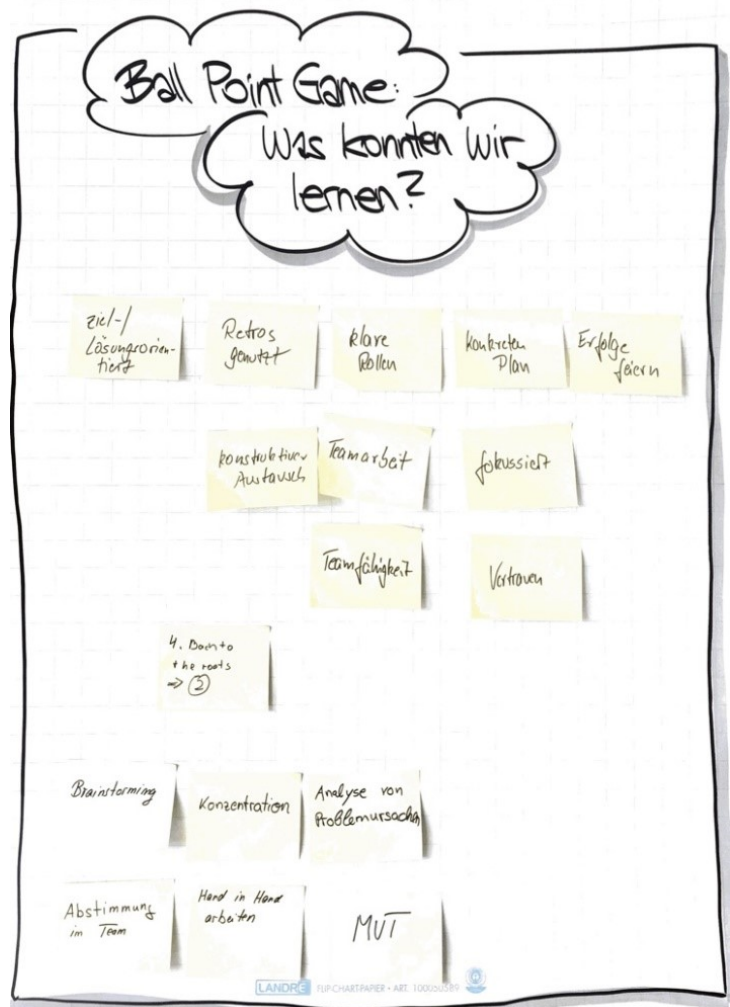 Ball Point Game:
Was konnten wir
lernen?
ziel-/
Lösungsorien-
tiert
Retros
genutzt
klare
Rollen
konkreten
Plan
Erfolge
feiern
konstruktiver
Austausch
Teamarbeit
fokussiert
Teamfähigkeit
Vertrauen
4. Back to
the roots
=> 2
Brainstorming
Konzentration
Analyse von
Problemursachen
Abstimmung
im Team
Hand in Hand
arbeiten
MUT
LANDRÉ FLIP-CHART-PAPIER • ART. 100050589